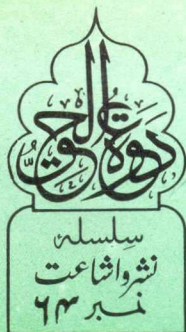 دعوة الحق
سلسلہ
نشرواشاعت
نمبر ٦٤